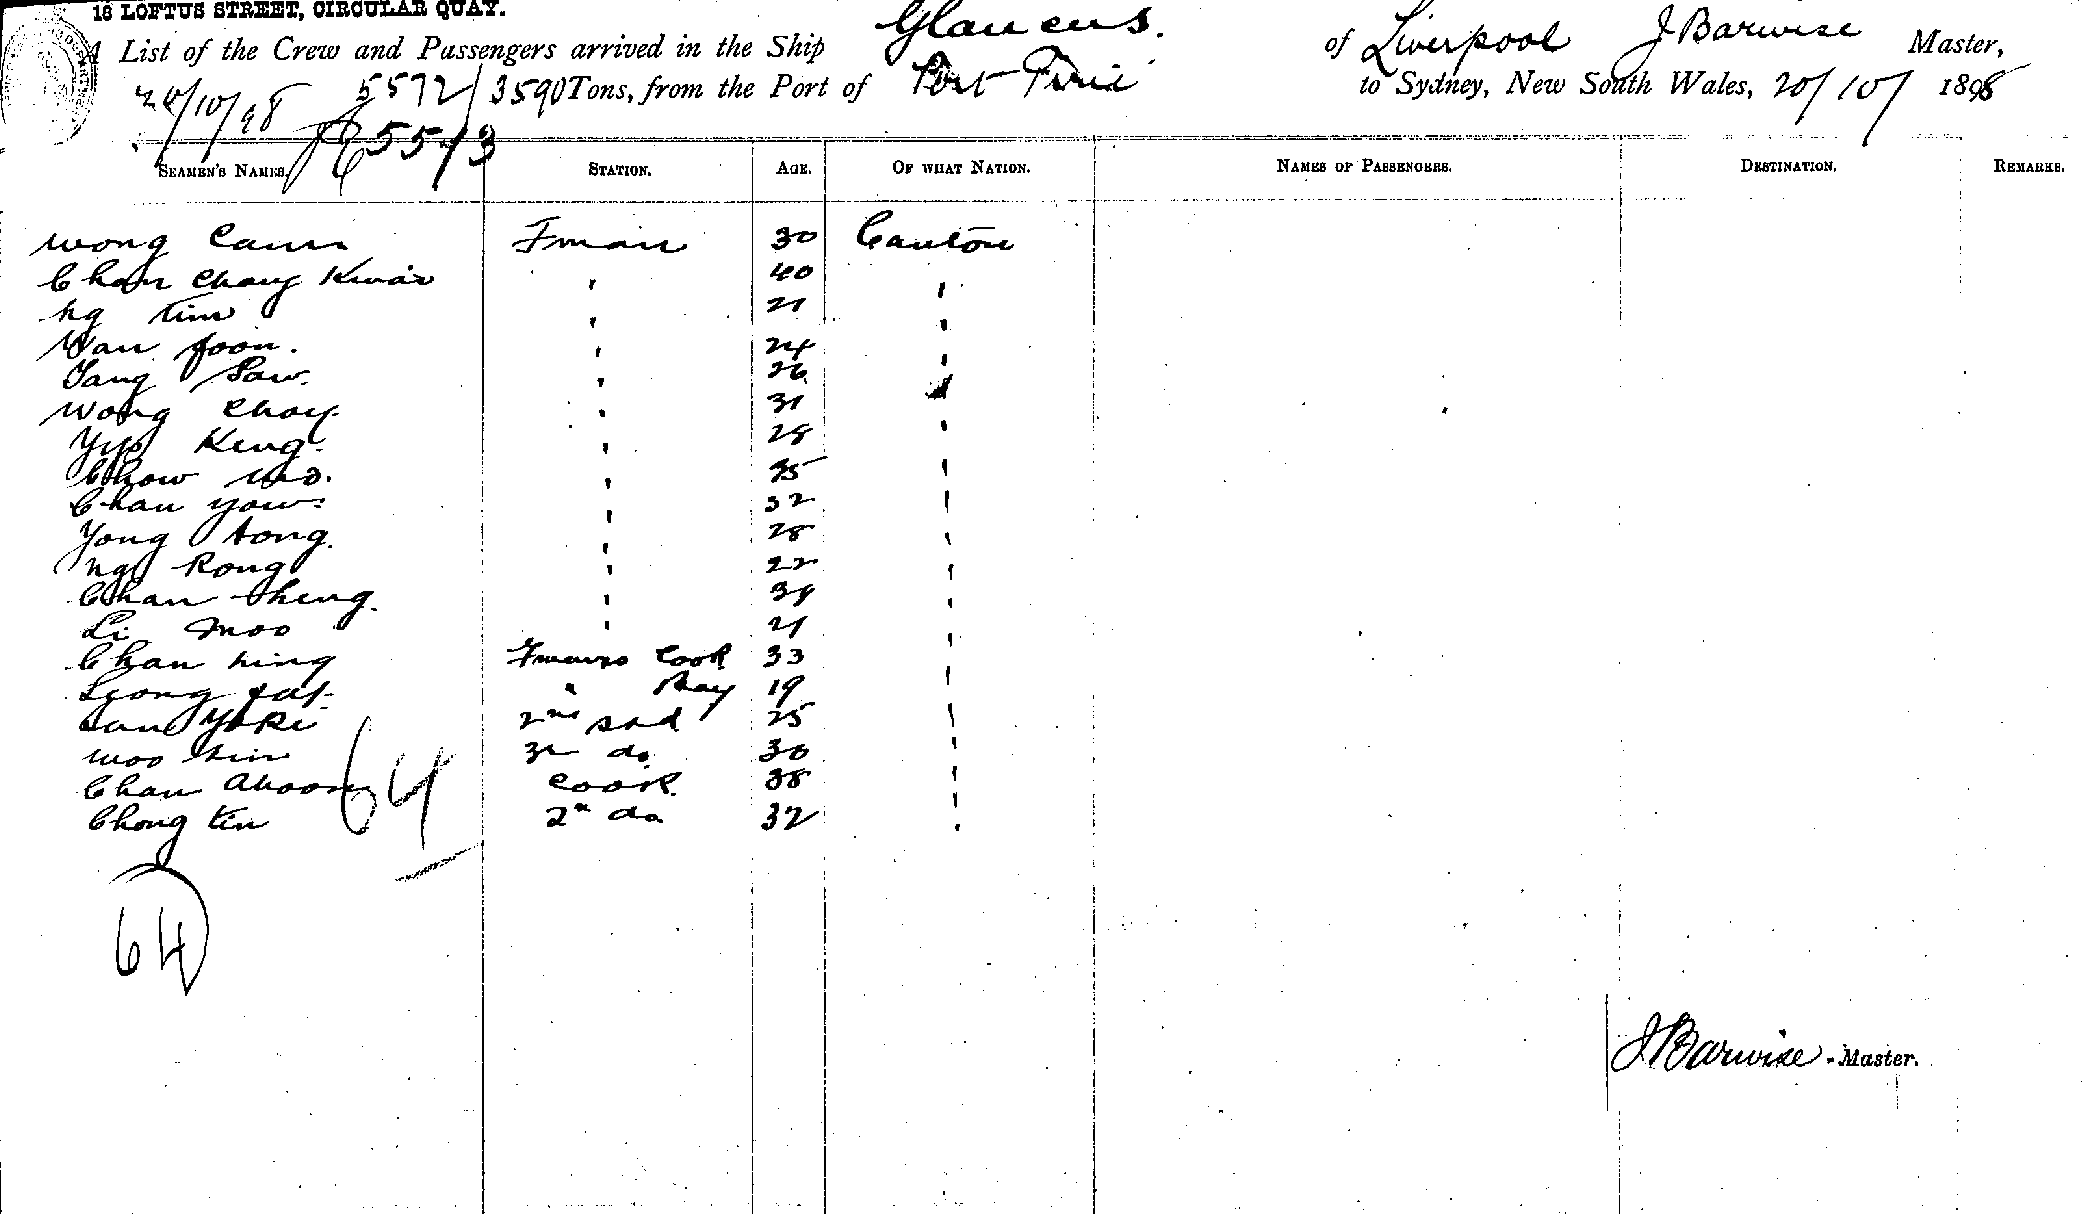 18 LOFTUS STREET, CIRCULAR QUAY.
A List of the Crew and Passengers arrived in the Ship Glaucus. of Liverpool J Barwise Master,
20/10/98 5572/3590 Tons, from the Port of Port Pirie to Sydney, New South Wales, 20/10/ 1898
5573
SEAMEN'S NAMES. STATION. AGE. OF WHAT NATION. NAMES OF PASSENGERS. DESTINATION. REMARKS.
Wong Fman 30 Canton
Chan Chong Kwai " 40 "
Ng Tim " 21 "
Wan foon. " 24 "
Yang Saw. " 26 "
Wong Choy " 31 "
Yip Keng. " 28 "
Chow Mo. " 35 "
Chan yow. " 32 "
Yong tong. " 28 "
Ng Kong " 22 "
Chan Sheng. " "
Li Moo " 21 "
Chan hing Fmans Cook 33 "
Leong fat " Boy 19 "
2nd 25 "
Woo 3r do 30 "
Chan Ahoon Cook 38 "
Chong tin 2n do 32 "
64
64
J Barwise - Master.